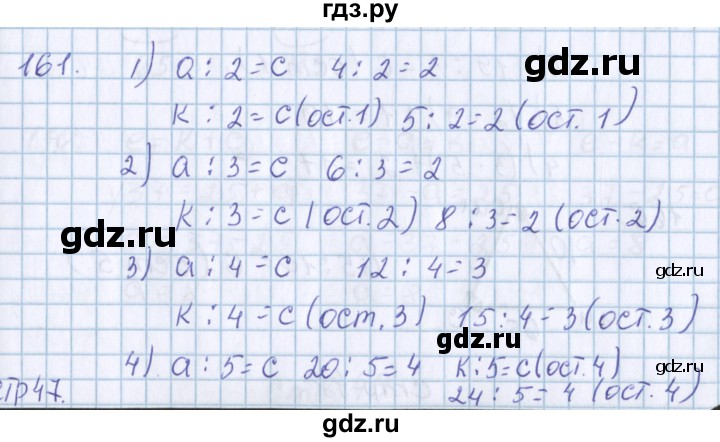 гдз.ру
161. 1) a : 2 = c 4 : 2 = 2
gdz.ru
к : 2 = c (ост.1) 5 : 2 = 2 (ост. 1)
2) a : 3 = c 6 : 3 = 2
к : 3 = c (ост.2) 8 : 3 = 2 (ост.2)
gdz.ru
3) a : 4 = c 12 : 4 = 3
gdz.ru
к : 4 = c (ост.3) 15 : 4 = 3 (ост.3)
4) a : 5 = c 20 : 5 = 4 к : 5 = c (ост.4)
стр47. 24 : 5 = 4 (ост.4)
gdz.ru
gdz.ru